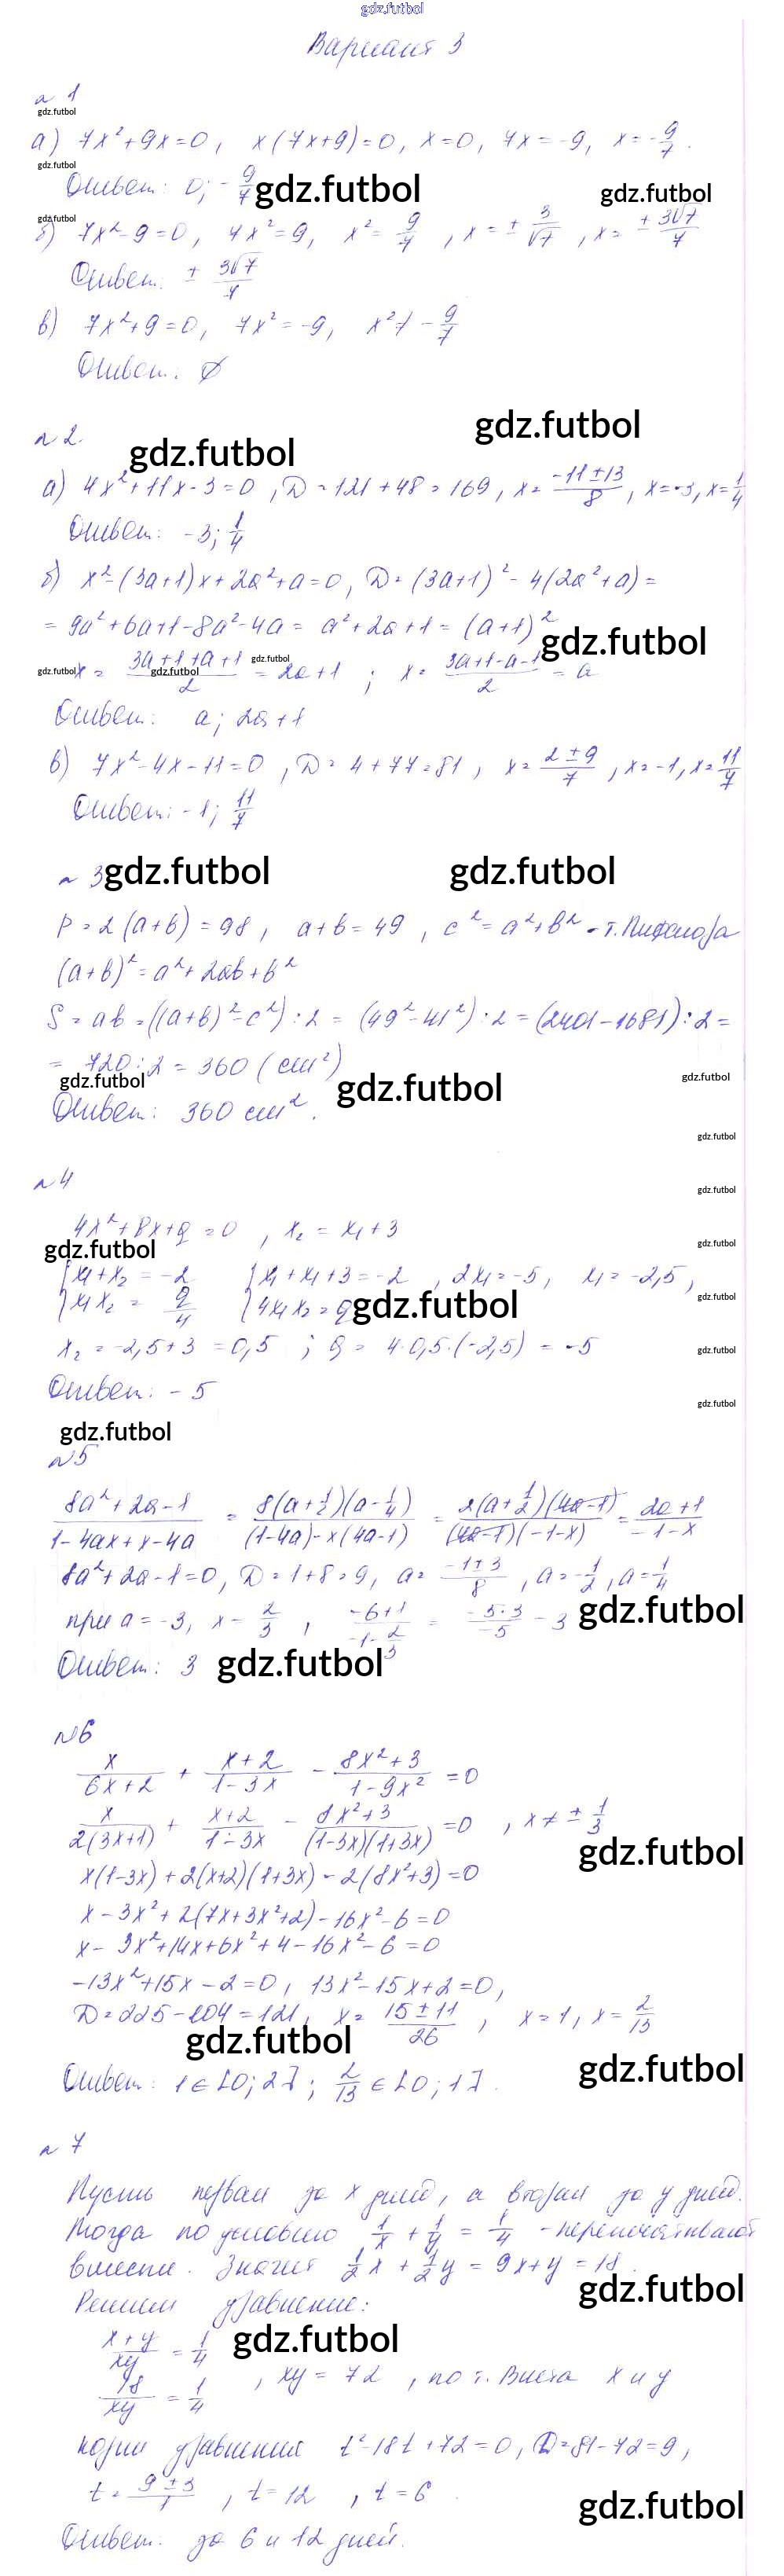 gdz.futbol
Вариант 3
№ 1
gdz.futbol
а) 7x²+9x=0, x(7x+9)=0, x=0, 7x=-9, x=-9/7.
gdz.futbol
Ответ: 0; -9/7 gdz.futbol gdz.futbol
gdz.futbol
б) 7x²-9=0, 7x²=9, x²=9/7, x=±3/√7, x=±3√7/7
Ответ: ±3√7/7
в) 7x²+9=0, 7x²=-9, x²≠-9/7
Ответ: ∅
gdz.futbol
№ 2.
gdz.futbol
а) 4x²+11x-3=0, D=121+48=169, x=(-11±13)/8, x=-3, x=1/4
Ответ: -3; 1/4
б) x²-(3a+1)x+2a²+a=0, D=(3a+1)²-4(2a²+a)=
=9a²+6a+1-8a²-4a=a²+2a+1=(a+1)²
gdz.futbol
gdz.futbol gdz.futbol gdz.futbol
x=(3a+1+a+1)/2=2a+1; x=(3a+1-a-1)/2=a
Ответ: a; 2a+1
в) 7x²-4x-11=0, D=4+77=81, x=(2±9)/7, x=-1, x=11/7
Ответ: -1; 11/7
№ 3 gdz.futbol gdz.futbol
P=2(a+b)=98, a+b=49, c²=a²+b² - т. Пифагора
(a+b)²=a²+2ab+b²
S=ab=((a+b)²-c²):2=(49²-41²):2=(2401-1681):2=
=720:2=360 (см²)
gdz.futbol gdz.futbol gdz.futbol
Ответ: 360 см².
gdz.futbol
№ 4
gdz.futbol
4x²+8x+q=0, x₂=x₁+3
gdz.futbol gdz.futbol
{x₁+x₂=-2 {x₁+x₁+3=-2, 2x₁=-5, x₁=-2,5,
{x₁x₂=q/4 {4x₁x₂=q gdz.futbol gdz.futbol
x₂=-2,5+3=0,5; q=4·0,5·(-2,5)=-5
gdz.futbol
Ответ: -5
gdz.futbol
gdz.futbol
№5
(8a²+2a-1)/(1-4ax+x-4a)=8(a+1/2)(a-1/4)/((1-4a)-x(4a-1))=2(a+1/2)(4a-1)/((4a-1)(-1-x))=(2a+1)/(-1-x)
8a²+2a-1=0, D=1+8=9, a=(-1±3)/8, a=-1/2, a=1/4
при a=-3, x-2/3, (-6+1)/(-1-2/3)=(-5·3)/(-5)-3 gdz.futbol
Ответ: 3 gdz.futbol
№6
x/(6x+2)+(x+2)/(1-3x)-(8x²+3)/(1-9x²)=0
x/(2(3x+1))+(x+2)/(1-3x)-(8x²+3)/((1-3x)(1+3x))=0, x≠±1/3
gdz.futbol
x(1-3x)+2(x+2)(1+3x)-2(8x²+3)=0
x-3x²+2(7x+3x²+2)-16x²-6=0
x-3x²+14x+6x²+4-16x²-6=0
-13x²+15x-2=0, 13x²-15x+2=0,
D=225-104=121, x=(15±11)/26, x=1, x=2/13
gdz.futbol gdz.futbol
Ответ: 1∈[0;2]; 2/13∈[0;1].
№ 7
Пусть первая за x дней, а вторая за y дней.
Тогда по условию 1/x+1/y=1/4 - перепечатывают
вместе. Значит 1/2x+1/2y=9 x+y=18.
gdz.futbol
Решим уравнение:
(x+y)/xy=1/4 gdz.futbol
18/xy=1/4, xy=72, по т. Виета x и y
корни уравнения t²-18t+72=0, D=81-72=9,
t=(9±3)/1, t=12, t=6.
gdz.futbol
Ответ: за 6 и 12 дней.